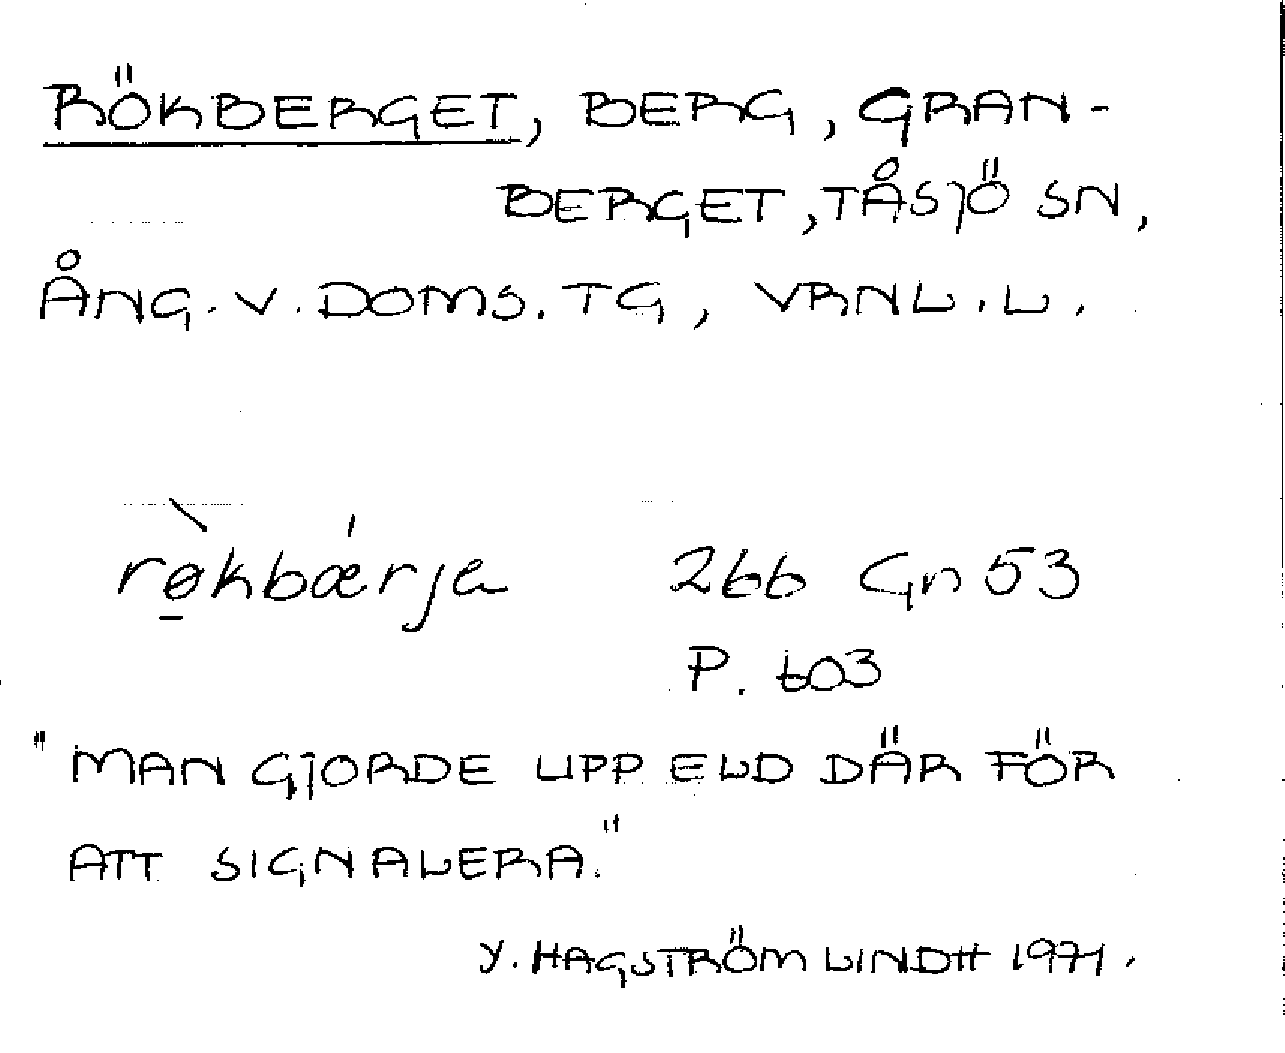 RÖKBERGET, BERG, GRAN-
BERGET, TÅSJÖ SN,
ÅNG. V. DOMS. TG, VRNL. L.
rø̠̀kbǽrja 266 Gn 53
P. 603
"MAN GJORDE UPP ELD DÄR FÖR
ATT SIGNALERA."
Y. HAGSTRÖM LINDH 1971.